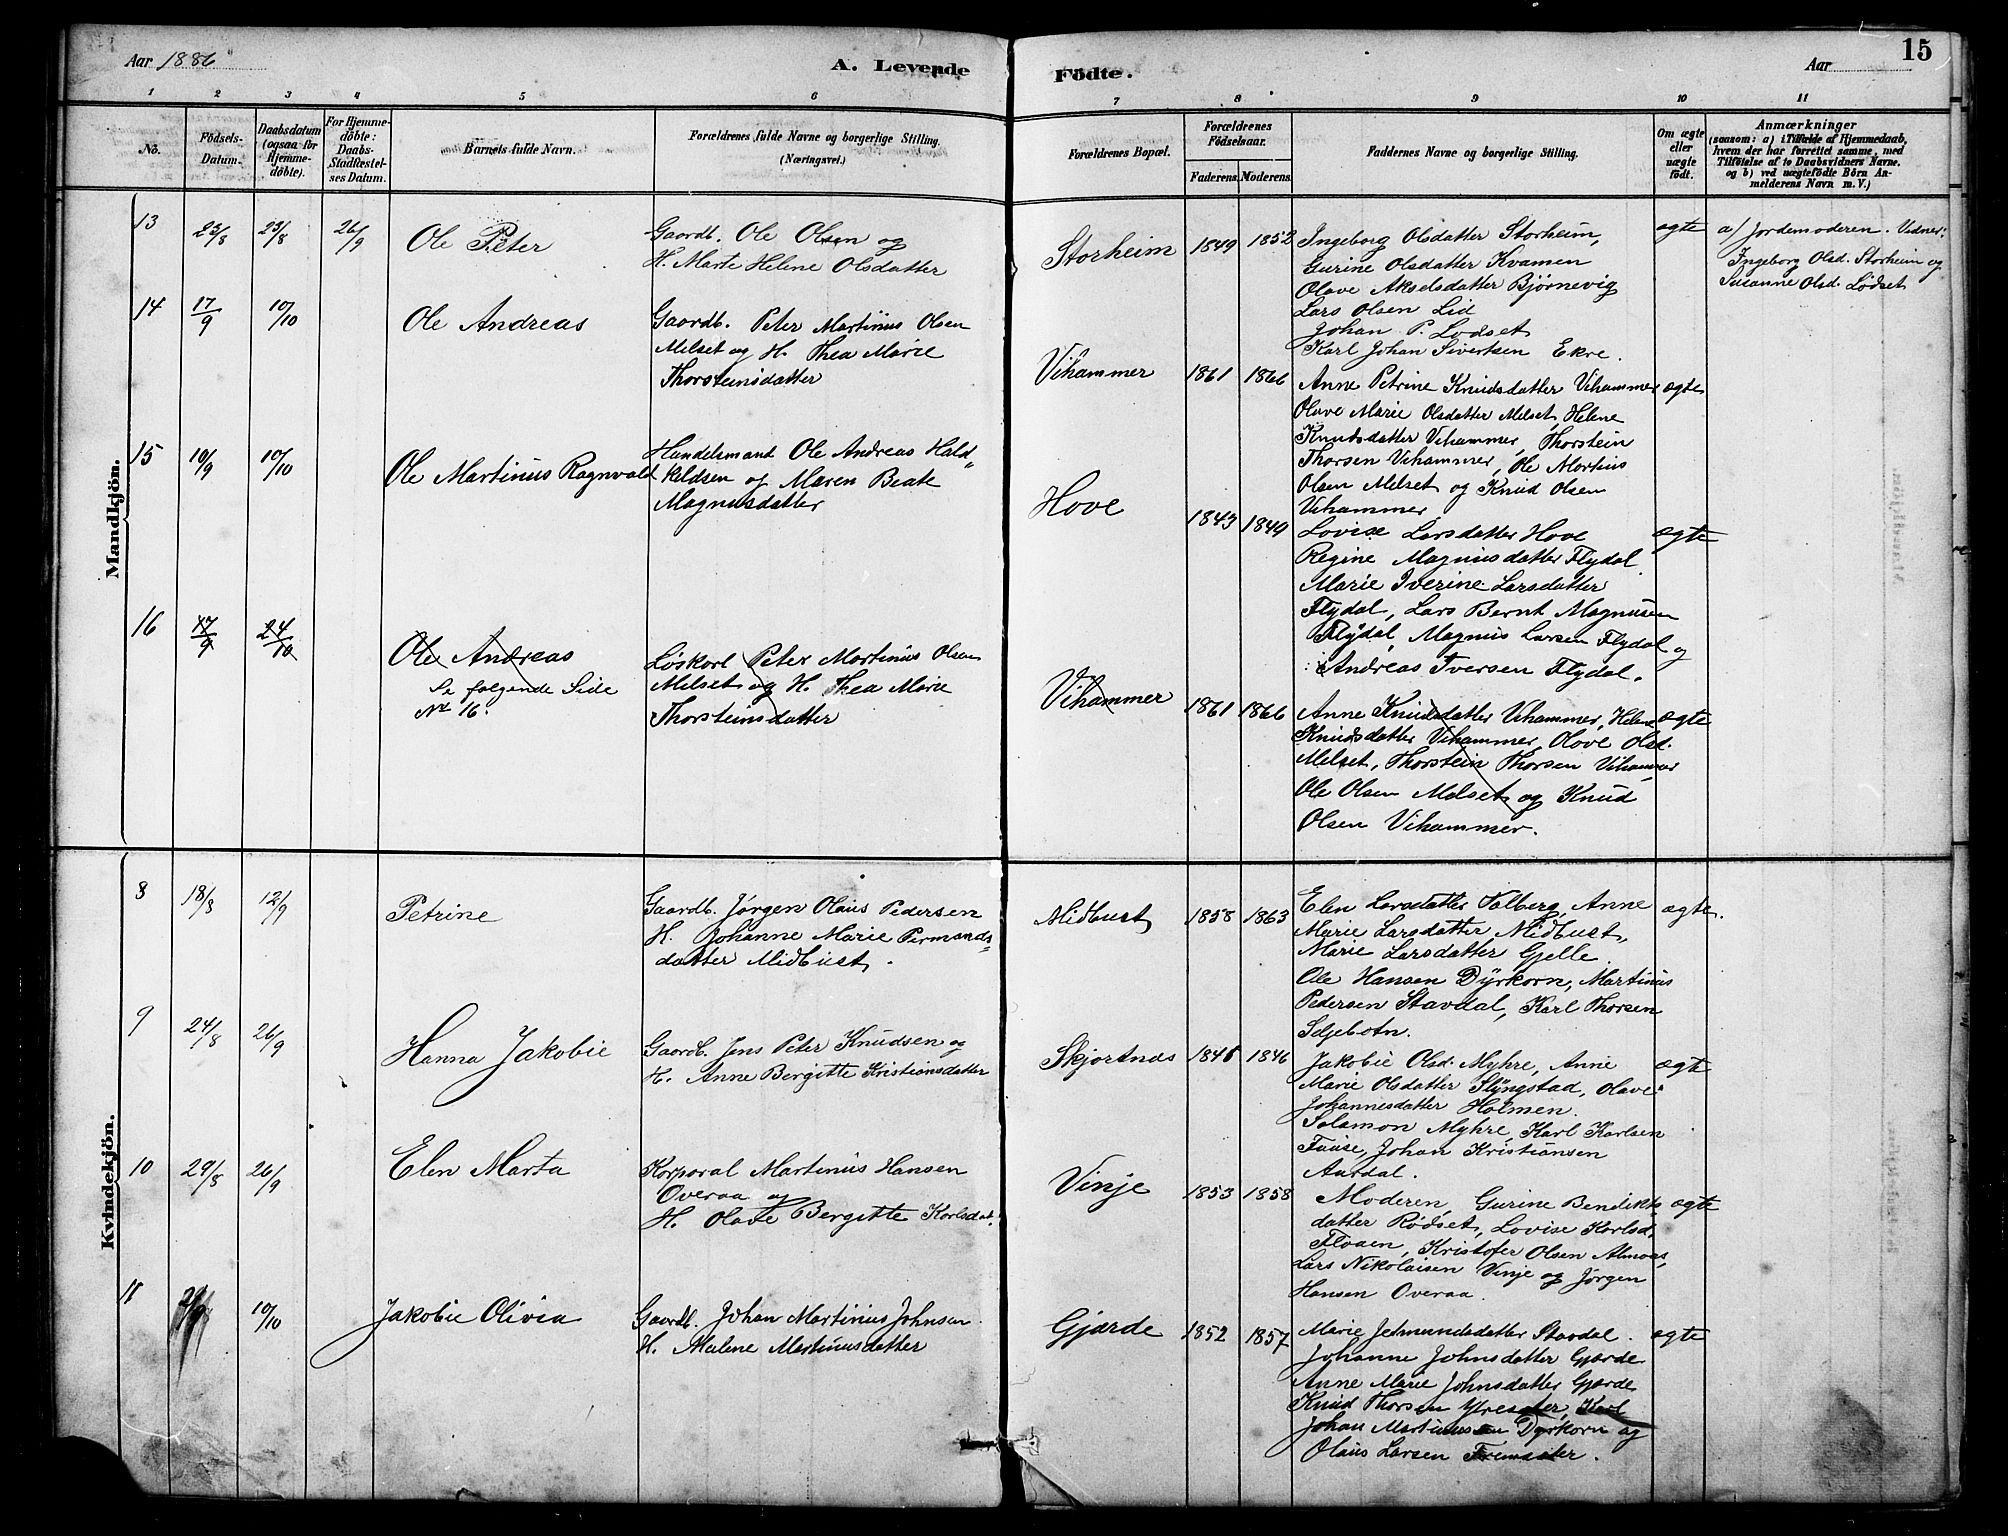 Aar 1886
A. Levende
Födte.
Aar
15
1 2 3 4 5 6 7 8 9 10 11
No.
Födsels-
Datum.
Daabsdatum
(ogsaa for
Hjemme-
döbte).
For Hjemme-
döbte:
Daabs-
Stadfæstel-
ses Datum.
Barnets fulde Navn.
Forældrenes fulde Navne og borgerlige Stilling.
(Næringsvei.)
Forældrenes Bopæl.
Forældrenes
Födselsaar.
Faderens. Moderens.
Faddernes Navne og borgerlige Stilling.
Om ægte
eller
uægte
födt.
Anmærkninger
(saasom: a) i Tilfælde af Hjemmedaab,
hvem der har forrettet samme, med
Tilföielse af to Daabsvidners Navne,
og b) ved uægtefödte Börn An-
melderens Navn m. V.)
Mandkjön.
13 23/8 23/8 26/9
Ole Peter
Gaardb. Ole Olsen og
H. Marte Helene Olsdatter
Storheim 1849 1852
Ingeborg Olsdatter Storheim,
Gurine Olsdatter Kvamen
Olave Akselsdatter Bjørnevig
Lars Olsen Lid
Johan P. Lødset
Karl Johan Sivertsen Ekre.
ægte
a/ Jordemoderen. Vidner:
Ingeborg Olsd. Storheim og
Susanne Olsd. Lødset
14 17/9 10/10
Ole Andreas
Gaardb. Peter Martinus Olsen
Melset og H. Thea Marie
Thorsteinsdatter
Vihammer 1861 1866
Anne Petrine Knudsdatter Vihammer
Olave Marie Olsdatter Melset, Helene
Knudsdatter Vihammer, Thorstein
Thorsen Vihammer, Ole Martius
Olsen Melset og Knud Olsen
Vihammer
ægte
15 10/9 10/10
Ole Martinus Ragnvald
Handelsmand Ole Andreas Hald-
keldsen og Maren Beate
Magnusdatter
Hove 1843 1849
Lovise Larsdatter Hove
Regine Magnusdatter Flydal
Marie Iverine Larsdatter
Flydal, Lars Bernt Magnusen
Flydal, Magnus Larsen Flydal og
Andreas Iversen Flydal.
ægte
16 17/9 24/10
Ole Andreas
Se følgende Side
No 16.
Løskarl Peter Martinus Olsen
Melset og H. Thea Marie
Thorsteinsdatter
Vihammer 1861 1866
Anne Knudsdatter Vihammer, Helene
Knudsdatter Vihammer, Olave Olsd.
Melset, Thorstein Thorsen Vihammer
Ole Olsen Melset og Knud
Olsen Vihammer.
ægte
Kvindekjön.
8 18/8 12/9
Petrine
Gaardb. Jørgen Olaus Pedersen
H. Johanne Marie Permands-
datter Midbust.
Midbust 1858 1863
Elen Larsdatter Valberg, Anne
Marie Larsdatter Midbust,
Marie Larsdatter Gjelle.
Ole Hansen Dyrkorn, Martinus
Pedersen Stavdal, Karl Thorsen
Seljebotn.
ægte.
9 24/8 26/9
Hanna Jakobie
Gaardb. Jens Peter Knudsen og
H. Anne Bergitte Kristiansdatter
Skjortnes 1846
Jakobie Olsd. Myhre, Anne
Marie Olsdatter Slyngstad, Olave
Johannesdatter Holmen.
Salamon Myhre, Karl Karlsen
Fause, Johan Kristiansen
Aurdal.
ægte
10 29/8 26/9
Elen Marta
Korporal Martinus Hansen
Overaa og
H. Olave Bergitte Karlsdat.
Vinje 1853 1858
Moderen, Gurine Bendikts
datter Rødset, Lovise Karlsd.
Floaen, Kristofer Olsen Almaas,
Lars Nikolaisen Vinje og Jørgen
Hansen Overaa.
ægte
11 10/10
Jakobie Olivia
Gaardb. Johan Martinus Johnsen
H. Malene Martinusdatter
Gjærde 1852 1857
Marie Jetmundsdatter Stavdal.
Johanne Johnsdatter Gjærde
Anne Marie Johnsdatter Gjærde
Knud Thorsen Yresæter, Karl
Johan Martinussen Dyrkorn og
Olaus Larsen Fremsæter.
ægte